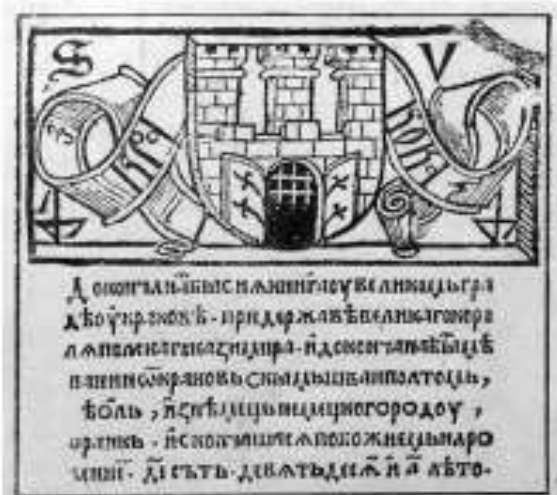 S V
Докончана бысть сиꙗ книга оу великомь гра
дѣ оу краковѣ · при державѣ великаго коро
лѧ полскаго казимира · и докончана бы мѣ
щаниномъ краковьскымь шваиполтомь,
фѣѡль , из нѣмець немецкого родоу ,
франкь · и скончашасѧ по божиемь наро
д҃і сѣть · девѧтьдесѧ и а҃ лѣто ·